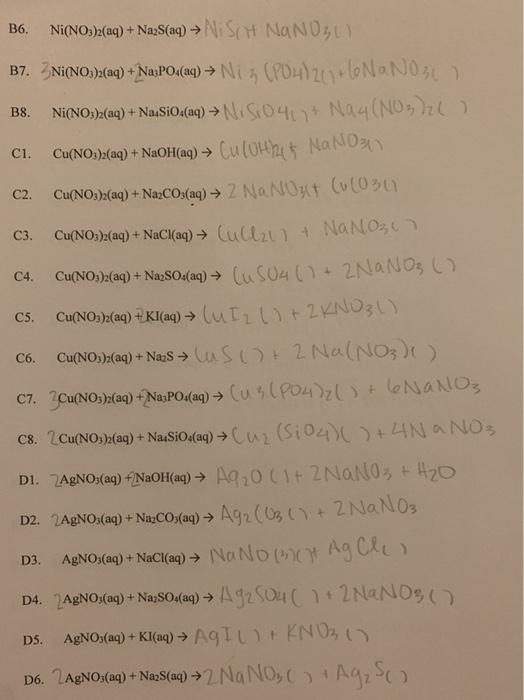 B6. Ni(NO₃)₂(aq) + Na₂S(aq) → NiS( )+ NaNO₃( )
B7. 3Ni(NO₃)₂(aq) + 2Na₃PO₄(aq) → Ni₃(PO₄)₂( )+6NaNO₃( )
B8. Ni(NO₃)₂(aq) + Na₄SiO₄(aq) → NiSiO₄( )+ Na₄(NO₃)₂( )
C1. Cu(NO₃)₂(aq) + NaOH(aq) → Cu(OH)₂( )+ NaNO₃( )
C2. Cu(NO₃)₂(aq) + Na₂CO₃(aq) → 2NaNO₃( )+ CuCO₃( )
C3. Cu(NO₃)₂(aq) + NaCl(aq) → CuCl₂( ) + NaNO₃( )
C4. Cu(NO₃)₂(aq) + Na₂SO₄(aq) → CuSO₄( ) + 2NaNO₃( )
C5. Cu(NO₃)₂(aq) + 2KI(aq) → CuI₂( ) + 2KNO₃( )
C6. Cu(NO₃)₂(aq) + Na₂S → CuS( ) + 2Na(NO₃)( )
C7. 3Cu(NO₃)₂(aq) + 2Na₃PO₄(aq) → Cu₃(PO₄)₂( ) + 6NaNO₃
C8. 2Cu(NO₃)₂(aq) + Na₄SiO₄(aq) → Cu₂(SiO₄)( ) + 4NaNO₃
D1. 2AgNO₃(aq) + 2NaOH(aq) → Ag₂O( )+ 2NaNO₃ + H₂O
D2. 2AgNO₃(aq) + Na₂CO₃(aq) → Ag₂CO₃( ) + 2NaNO₃
D3. AgNO₃(aq) + NaCl(aq) → NaNO(3)( )+ AgCl( )
D4. 2AgNO₃(aq) + Na₂SO₄(aq) → Ag₂SO₄( ) + 2NaNO₃( )
D5. AgNO₃(aq) + KI(aq) → AgI( ) + KNO₃( )
D6. 2AgNO₃(aq) + Na₂S(aq) → 2NaNO₃( ) + Ag₂S( )